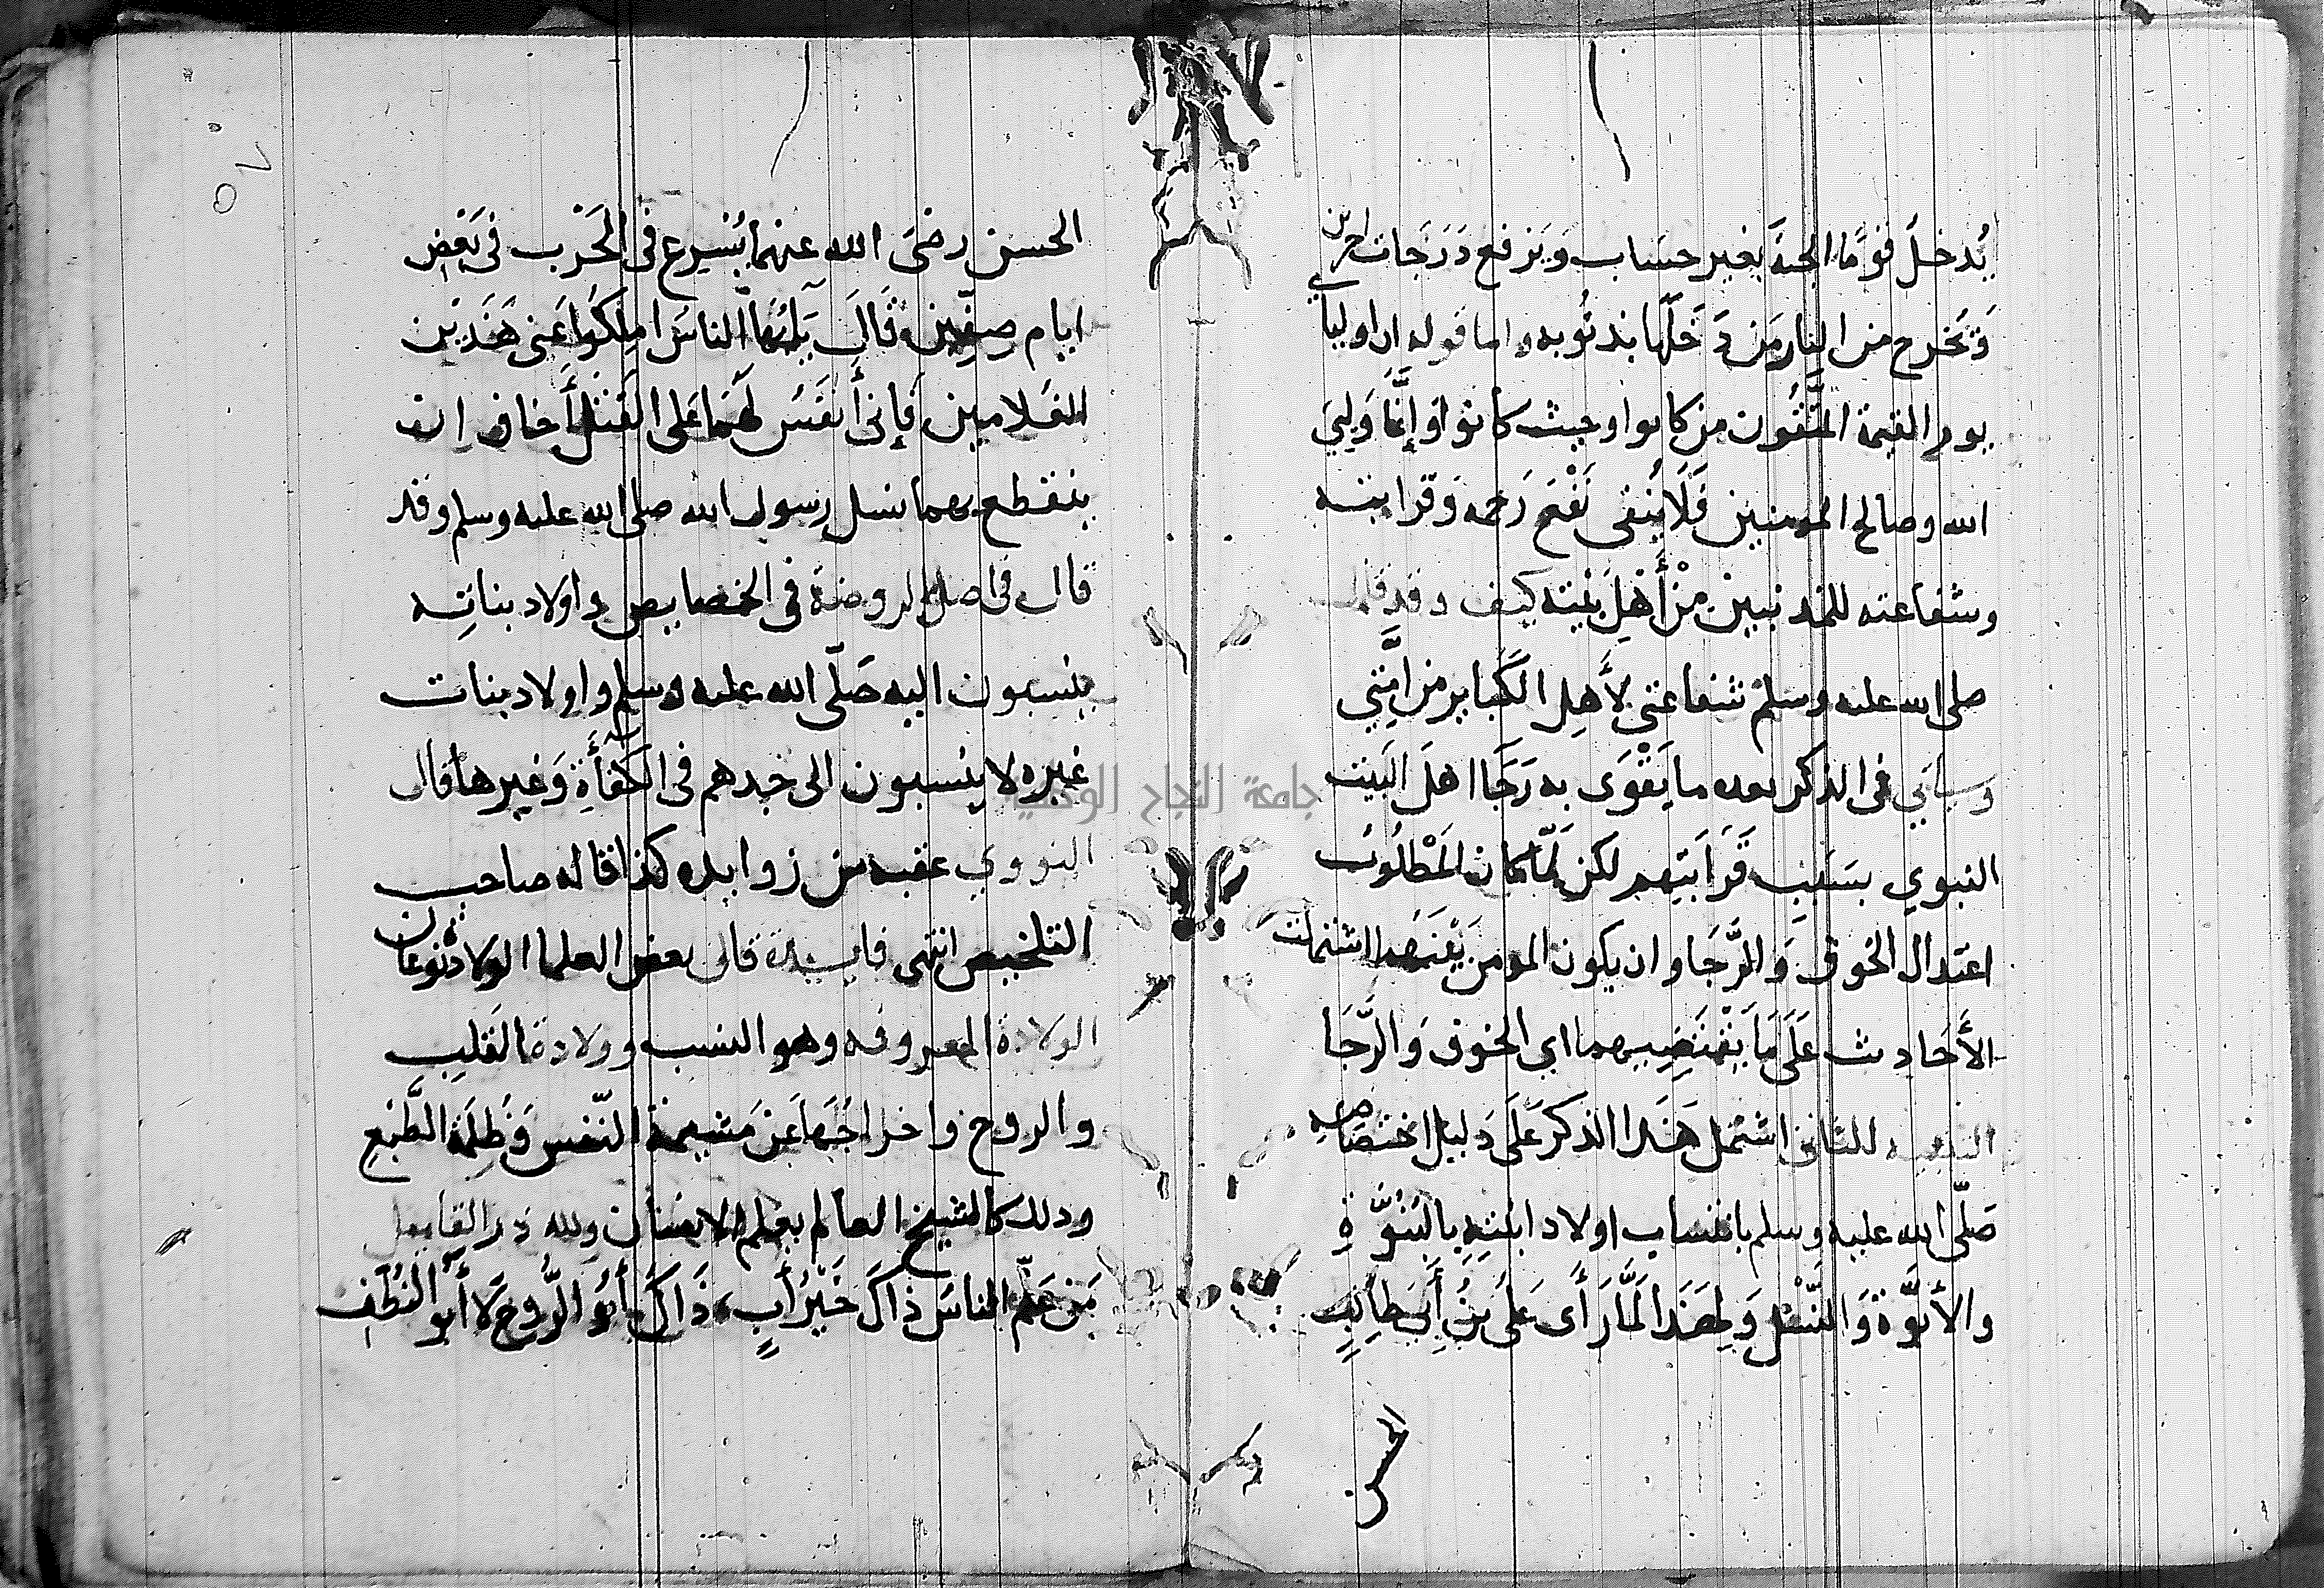 يُدخلَ قومًا الجنة بغير حساب وَيَرفع دَرَجَات اخرين
وَيخرج من النار مَن دَخَلَها بذنُوبه واما قوله ان اوليايي
يوم القيمة المتَّقُون من كانوا وحيث كانوا وَإنَّمَا وَلِيّيَ
الله وصالح المومنين فَلَا يُنفى نَفْعَ رَحمه وَقرابته
وشفاعته للمذنبين مِنْ أَهْلِ بَيته كيف وقد قال
صلى الله عليه وسلم شفاعتي لأَهلِ الكَبَاير من امَّتِي
وسيأتي في الذكر بعده ما يَقْوَى به رَجَا اهل البَيت
النبوي بسَبَبِ قَرَابَتِهم لكن لمّا كان المَطْلُوبُ
اعتدال الخوف وَالرَّجَا وان يكون المومن بَيْنَهما اشتملت
الأَحَاديث عَلَى مَا يَقْتَضِيهما اي الخوف وَالرَّجَا
التنبيه الثاني اشتمل هَذا الذكر عَلَى دَليل اختصَاصِه
صَلّى الله عليه وسلم بانتساب اولاد ابنتِهِ بالبُنُوَّةِ
والأبوَّة وَالنَّسْل وَلهَذَا لَمَّا رَأَى عَلىُ بنُ أَبي طَالِبٍ
الحسن
جامعة النجاح الوطنية
٥٧
الحسن رضىَ الله عنهما يُسْرع في الحَرْب في بَعْضِ
ايام صِفِّين قَالَ يَأيُّها الناسُ امْلِكُوا عَني هَذَيْن
الغلامين فَإني أنفَسُ لَهُمَا عَلَى القَتْل أَخاف ان
ينقطع بهما نسل رسول الله صلى الله عليه وسلم وقد
قال في اصل الروضة في الخصايص واولاد بناتِه
ينسبون اليه صَلّى الله عليه وسلم واولاد بنات
غيره لا ينسبون الى جدهم في الكَفَأَةِ وَغيرها قال
النووي عقبه من زوايده كذا قاله صاحب
التلخيص انتهى فايدة قال بعض العلما الولادة نوعان
الولادة المعروفه وهو النسب وولادة القَلبِ
والروح واخراجُهَا عَن مَشيمة النّفس وَظُلمَة الطَّبْعِ
وذلك كالشيخ العالم يعلم الانسان ولله دَر القايل
مَن عَلّم الناسَ ذَاكَ خَيْرُ أبٍ، ذَاكَ أبُو الرُّوحِ لَا أبُو النُّطَفِ